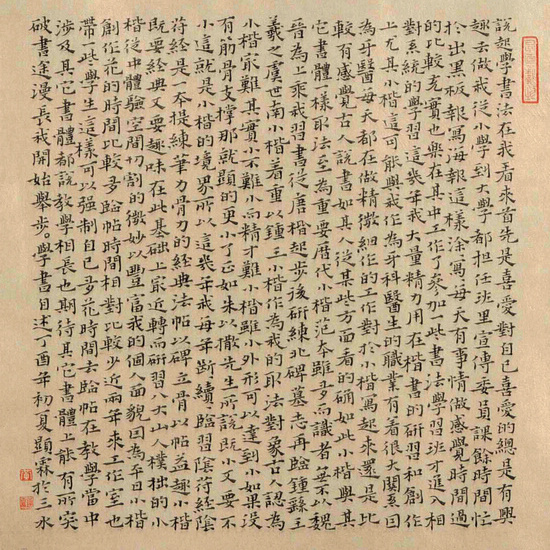 說起學書法在我看來首先是喜愛對自己喜愛的總是有興
趣去做我從小學到大學都担任班里宣傳委員課餘時間忙
於出黑板報寫海報這樣涂寫每天有事情做感覺時間過
的比較充實也樂在其中工作了參加一些書法學習班才進入相
對系統的學習這幾年我大量精力用在楷書的研習和創作
上尤其小楷這可能與我作為牙科醫生的職業有着很大關系因
為牙醫每天都在做精微細作的工作對於小楷寫起來還是比
較有感覺古人說書如其人從某些方面看的确如此小楷與其
它書體一樣取法至為重要歷代小楷范本雖多而識者無不以魏
晉為上乘我習書從唐楷起步後研練北碑墓志再臨鍾繇王
羲之虞世南小楷着重以鍾王小楷作為我的取法對象古人認為
小楷最難其實小不難小而精才難小楷雖小外形可以達到小如果沒
有筋骨支撑那就顯的更小了正如朱以撒先生所說既小又要不
小這就是小楷的境界所以這幾年我每年斷續臨習陰符經陰
符經是一本提練筆力骨力的經典法帖以碑立骨以帖益趣小楷
既要經典又要趣味在此基础上最近轉而研習八大山人樸拙的小
楷從中體驗空間切割的微妙以豐富我的個人面貌因為平日小楷
創作花的時間比較多臨帖時間相對比較少近兩年來工作室也
帶一些學生這樣可以强制自己多花時間去臨帖在教學當中
涉及其它書體都說教學相長也期待其它書體上能有所突
破書途漫長我開始舉步。學書自述丁酉年初夏顯霖於三水